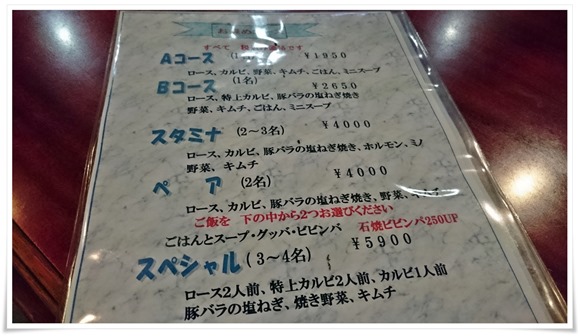 お薦め
すべて 税 です
Aコース (1 ¥1950
ロース、カルビ、野菜、キムチ、ごはん、ミニスープ
Bコース (1名) ¥2650
ロース、特上カルビ、豚バラの塩ねぎ焼き
野菜、キムチ、ごはん、ミニスープ
スタミナ (2~3名) ¥4000
ロース、カルビ、豚バラの塩ねぎ焼き、ホルモン、ミノ
野菜、キムチ
ペ ア (2名) ¥4000
ロース、カルビ、豚バラの塩ねぎ焼き、野菜、キムチ
ご飯を 下の中から2つお選びください
ごはんとスープ・グッパ・ビビンパ 石焼ビビンパ250UP
スペシャル (3~4名) ¥5900
ロース2人前、特上カルビ2人前、カルビ1人前
豚バラの塩ねぎ、焼き野菜、キムチ